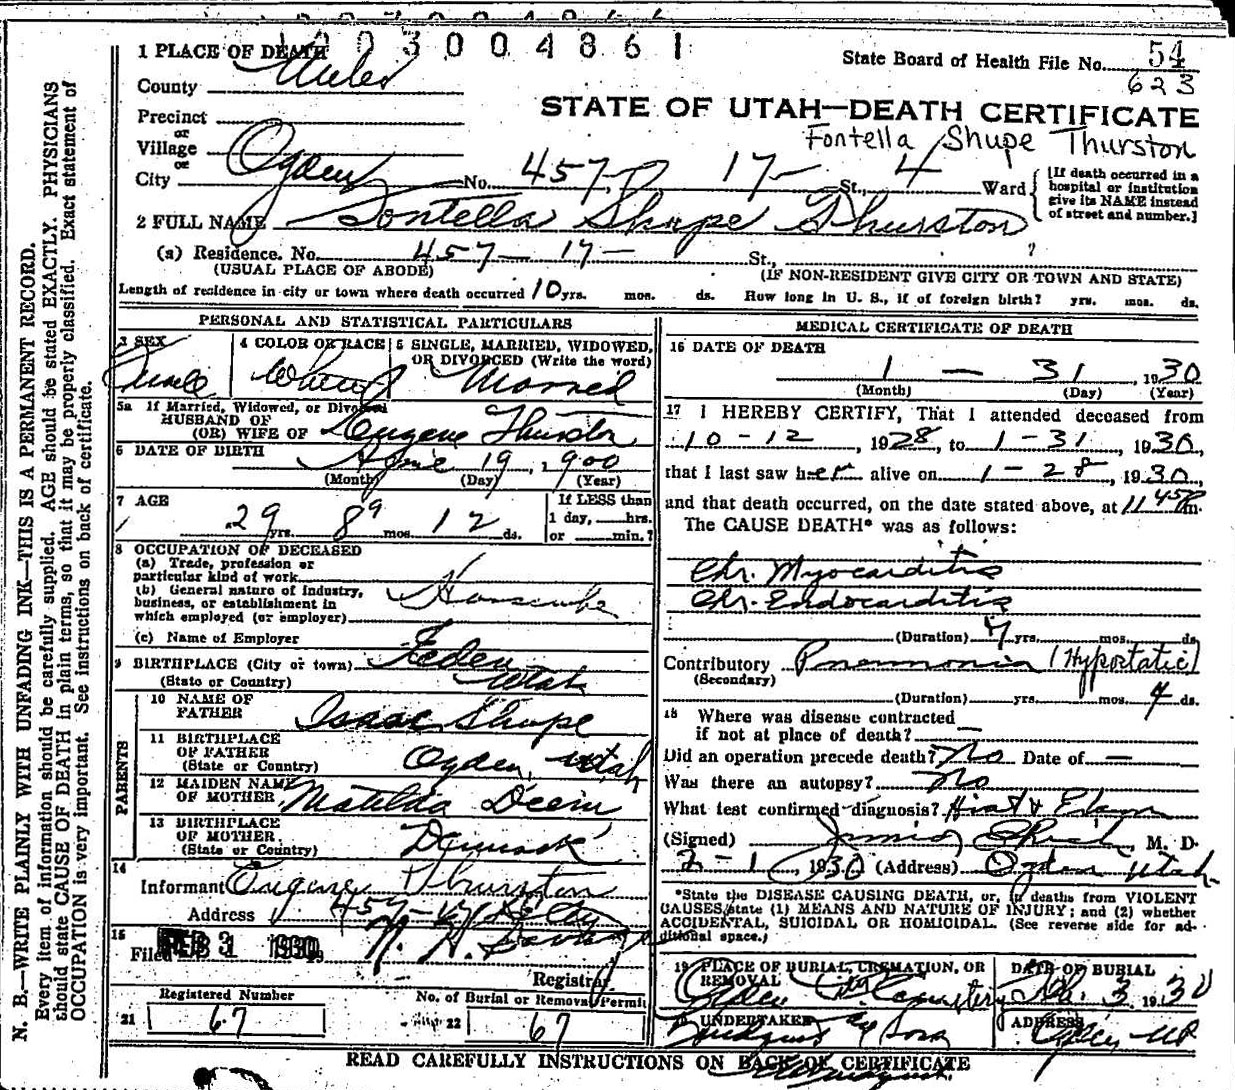 2030004861
1 PLACE OF DEATH
State Board of Health File No. 54
623
County Weber
STATE OF UTAH—DEATH CERTIFICATE
Precinct
or
Village
Fontella Shupe Thurston
or
City Ogden No. 457 17- St., 4 Ward
[If death occurred in a hospital or institution give its NAME instead of street and number.]
2 FULL NAME Fontella Shupe Thurston
(a) Residence. No. 457- 17- St.,
(USUAL PLACE OF ABODE) (IF NON-RESIDENT GIVE CITY OR TOWN AND STATE)
Length of residence in city or town where death occurred 10 yrs. mos. ds. How long in U. S., if of foreign birth? yrs. mos. ds.
PERSONAL AND STATISTICAL PARTICULARS
3 SEX
4 COLOR OR RACE
5 SINGLE, MARRIED, WIDOWED, OR DIVORCED (Write the word)
Female White Married
5a If Married, Widowed, or Divorced
HUSBAND OF
(OR) WIFE OF Eugene Thurston
6 DATE OF BIRTH
19 1900
(Month) (Day) (Year)
7 AGE
If LESS than
1 day, hrs.
or min.?
29 yrs. 8 9 mos. 12 ds.
8 OCCUPATION OF DECEASED
(a) Trade, profession or
particular kind of work
(b) General nature of industry,
business, or establishment in
which employed (or employer)
Housewife
(c) Name of Employer
9 BIRTHPLACE (City or town) Eden
(State or Country) Utah
PARENTS
10 NAME OF
FATHER Isaac Shupe
11 BIRTHPLACE
OF FATHER
(State or Country) Ogden, Utah
12 MAIDEN NAME
OF MOTHER Matilda
13 BIRTHPLACE
OF MOTHER.
(State or Country) Denmark
14
Informant Eugene Thurston
Address 457-17
15
Filed FEB 3 1930
Registrar
Registered Number No. of Burial or Removal Permit
21 67 22 67
MEDICAL CERTIFICATE OF DEATH
16 DATE OF DEATH
1 — 31, 1930
(Month) (Day) (Year)
17 I HEREBY CERTIFY, That I attended deceased from
10-12, 1928, to 1-31, 1930,
that I last saw her alive on 1-28, 1930
and that death occurred, on the date stated above, at 11 45 P m.
The CAUSE DEATH* was as follows:
Chr. Myocarditis
Chr. Endocarditis
(Duration) yrs. mos. ds
Contributory Pneumonia (Hypostatic)
(Secondary)
(Duration) yrs. mos. 4 ds.
18 Where was disease contracted
if not at place of death? —
Did an operation precede death? No Date of —
Was there an autopsy? No
What test confirmed diagnosis?
(Signed) M. D.
2-1 1930 (Address) Ogden Utah
*State the DISEASE CAUSING DEATH, or, in deaths from VIOLENT
CAUSES, state (1) MEANS AND NATURE OF INJURY; and (2) whether
ACCIDENTAL, SUICIDAL OR HOMICIDAL. (See reverse side for ad-
ditional space.)
19 PLACE OF BURIAL, CREMATION, OR
REMOVAL
DATE OF BURIAL
Ogden City Cemetery Feb. 3 1930
UNDERTAKER ADDRESS
Lindquist & Sons Ogden
READ CAREFULLY INSTRUCTIONS ON BACK OF CERTIFICATE
N. B.—WRITE PLAINLY WITH UNFADING INK—THIS IS A PERMANENT RECORD.
Every item of information should be carefully supplied. AGE should be stated EXACTLY. PHYSICIANS
should state CAUSE OF DEATH in plain terms, so that it may be properly classified. Exact statement of
OCCUPATION is very important. See instructions on back of certificate.